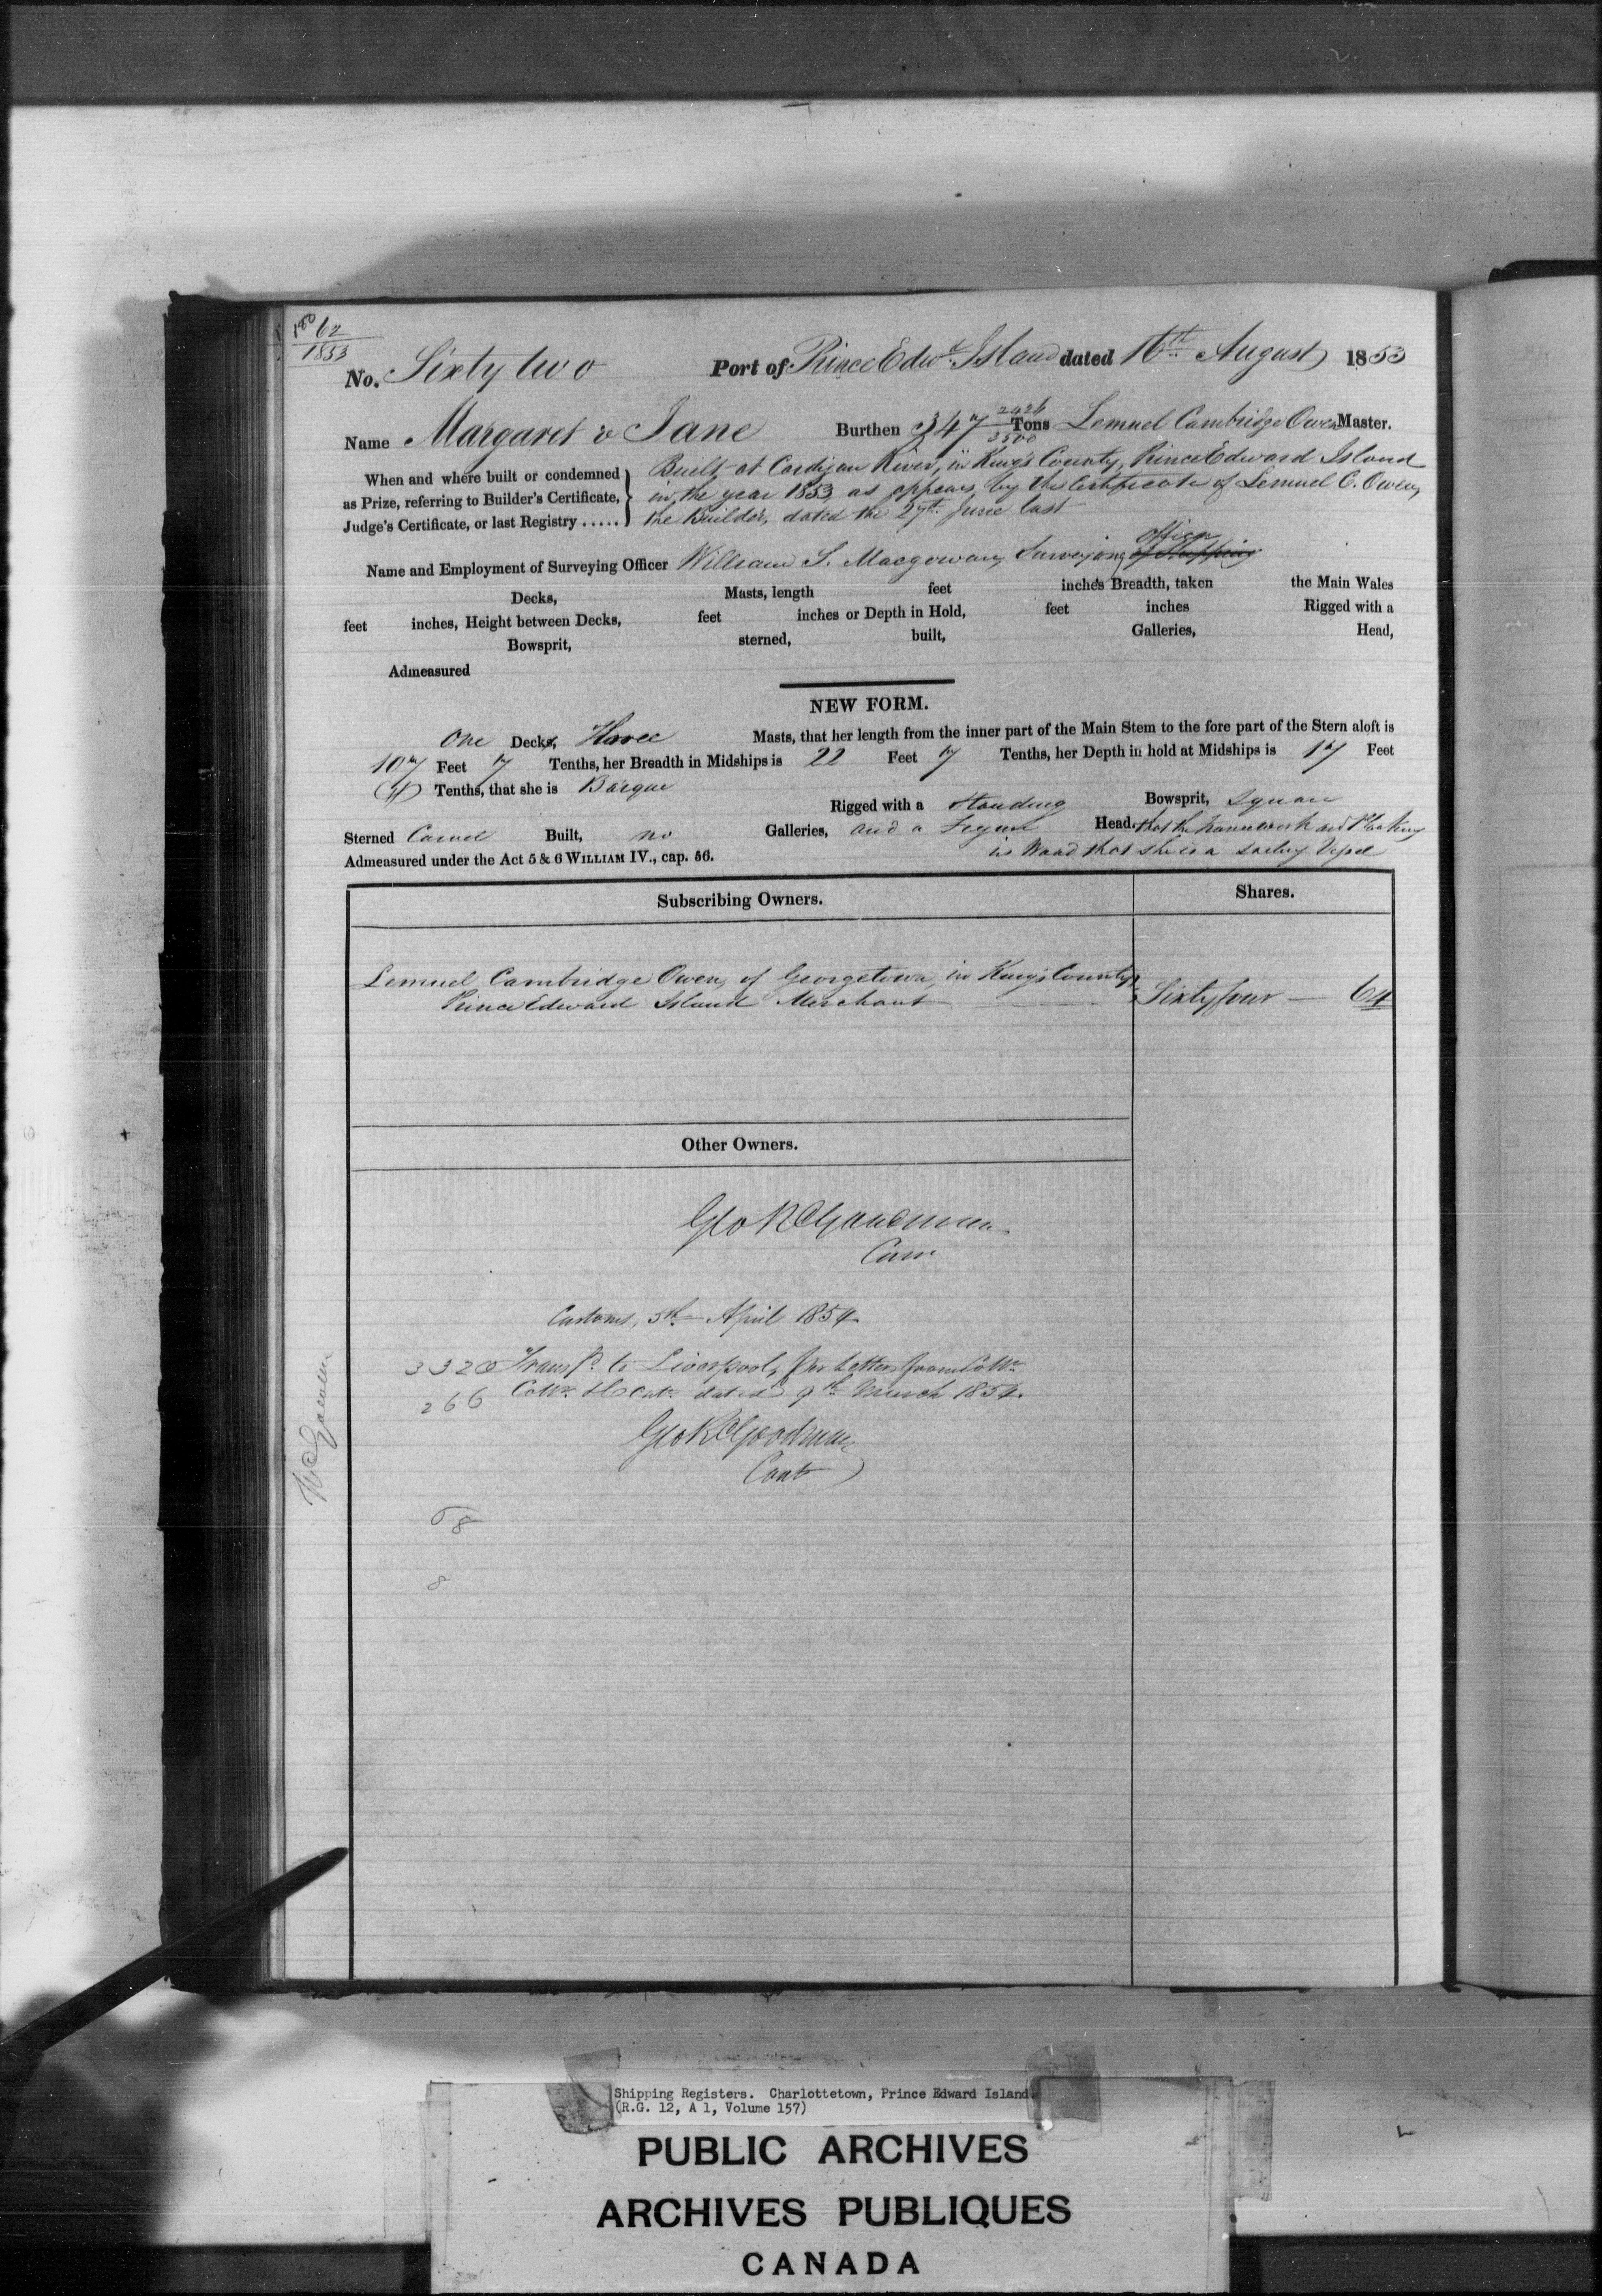 62
1853
No. Sixty two Port of Prince Edwd. Island dated 16th August 1853
Name Margaret & Jane Burthen 347 2426/3500 Tons Lemuel Cambridge Owen Master.
When and where built or condemned as Prize, referring to Builder's Certificate, Judge's Certificate, or last Registry .....
Built at Cardigan River, in King's County, Prince Edward Island
in the year 1853 as appears by the Certificate of Lemuel C. Owen,
the Builder, dated the 27th June last
Name and Employment of Surveying Officer William S. Macgowan, Surveying officer
Decks, Masts, length feet inches Breadth, taken the Main Wales
feet inches, Height between Decks, feet inches or Depth in Hold, feet inches Rigged with a
Bowsprit, sterned, built, Galleries, Head,
Admeasured
NEW FORM.
One Decks, Three Masts, that her length from the inner part of the Main Stem to the fore part of the Stern aloft is
107 Feet 7 Tenths, her Breadth in Midships is 22 Feet 7 Tenths, her Depth in hold at Midships is 17 Feet
Tenths, that she is Barque
Rigged with a Standing Bowsprit, Square
Sterned Carvel Built, no Galleries, and a Figure Head. that the framework and Planking
Admeasured under the Act 5 & 6 WILLIAM IV., cap. 56. is Wood that she is a sailing Vessel
Subscribing Owners. Shares.
Lemuel Cambridge Owen, of Georgetown, in King's County
Prince Edward Island Merchant Sixty four — 64
Other Owners.
Geo R Goodman
Customs, 5th April 1854
3320 Transfd. to Liverpool, per Letter from
266 dated 9th March 1854.
Geo R Goodman
Cont
8
8
Shipping Registers. Charlottetown, Prince Edward Island
(R.G. 12, A 1, Volume 157)
PUBLIC ARCHIVES
ARCHIVES PUBLIQUES
CANADA